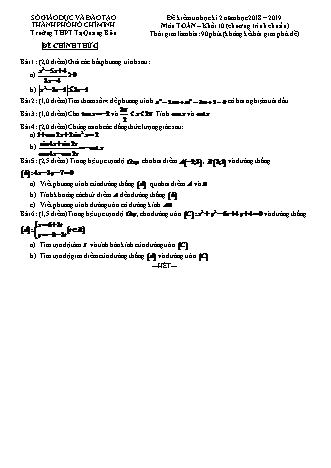 SỞ GIÁO DỤC VÀ ĐÀO TẠO
THÀNH PHỐ HỒ CHÍ MINH
Trường THPT Tạ Quang Bửu
Đề kiểm tra học kì 2 năm học 2018 – 2019
Môn TOÁN – Khối 10 (chương trình chuẩn)
Thời gian làm bài: 90 phút (không kể thời gian phát đề)
ĐỀ CHÍNH THỨC
Bài 1: (2,0 điểm) Giải các bất phương trình sau:
a)
b)
Bài 2: (1,0 điểm) Tìm tham số m để phương trình có hai nghiệm trái dấu
Bài 3: (1,0 điểm) Cho và Tính và
Bài 4: (2,0 điểm) Chứng minh các đẳng thức lượng giác sau:
a)
b)
Bài 5: (2,5 điểm) Trong hệ trục tọa độ Oxy, cho hai điểm và đường thẳng
a) Viết phương trình của đường thẳng qua hai điểm A và B
b) Tính khoảng cách từ điểm A đến đường thẳng
c) Viết phương trình đường tròn có đường kính AB
Bài 6: (1,5 điểm) Trong hệ trục tọa độ Oxy, cho đường tròn và đường thẳng
a) Tìm tọa độ tâm I và tính bán kính của đường tròn (C)
b) Tìm tọa độ giao điểm của đường thẳng và đường tròn (C)
---HẾT---